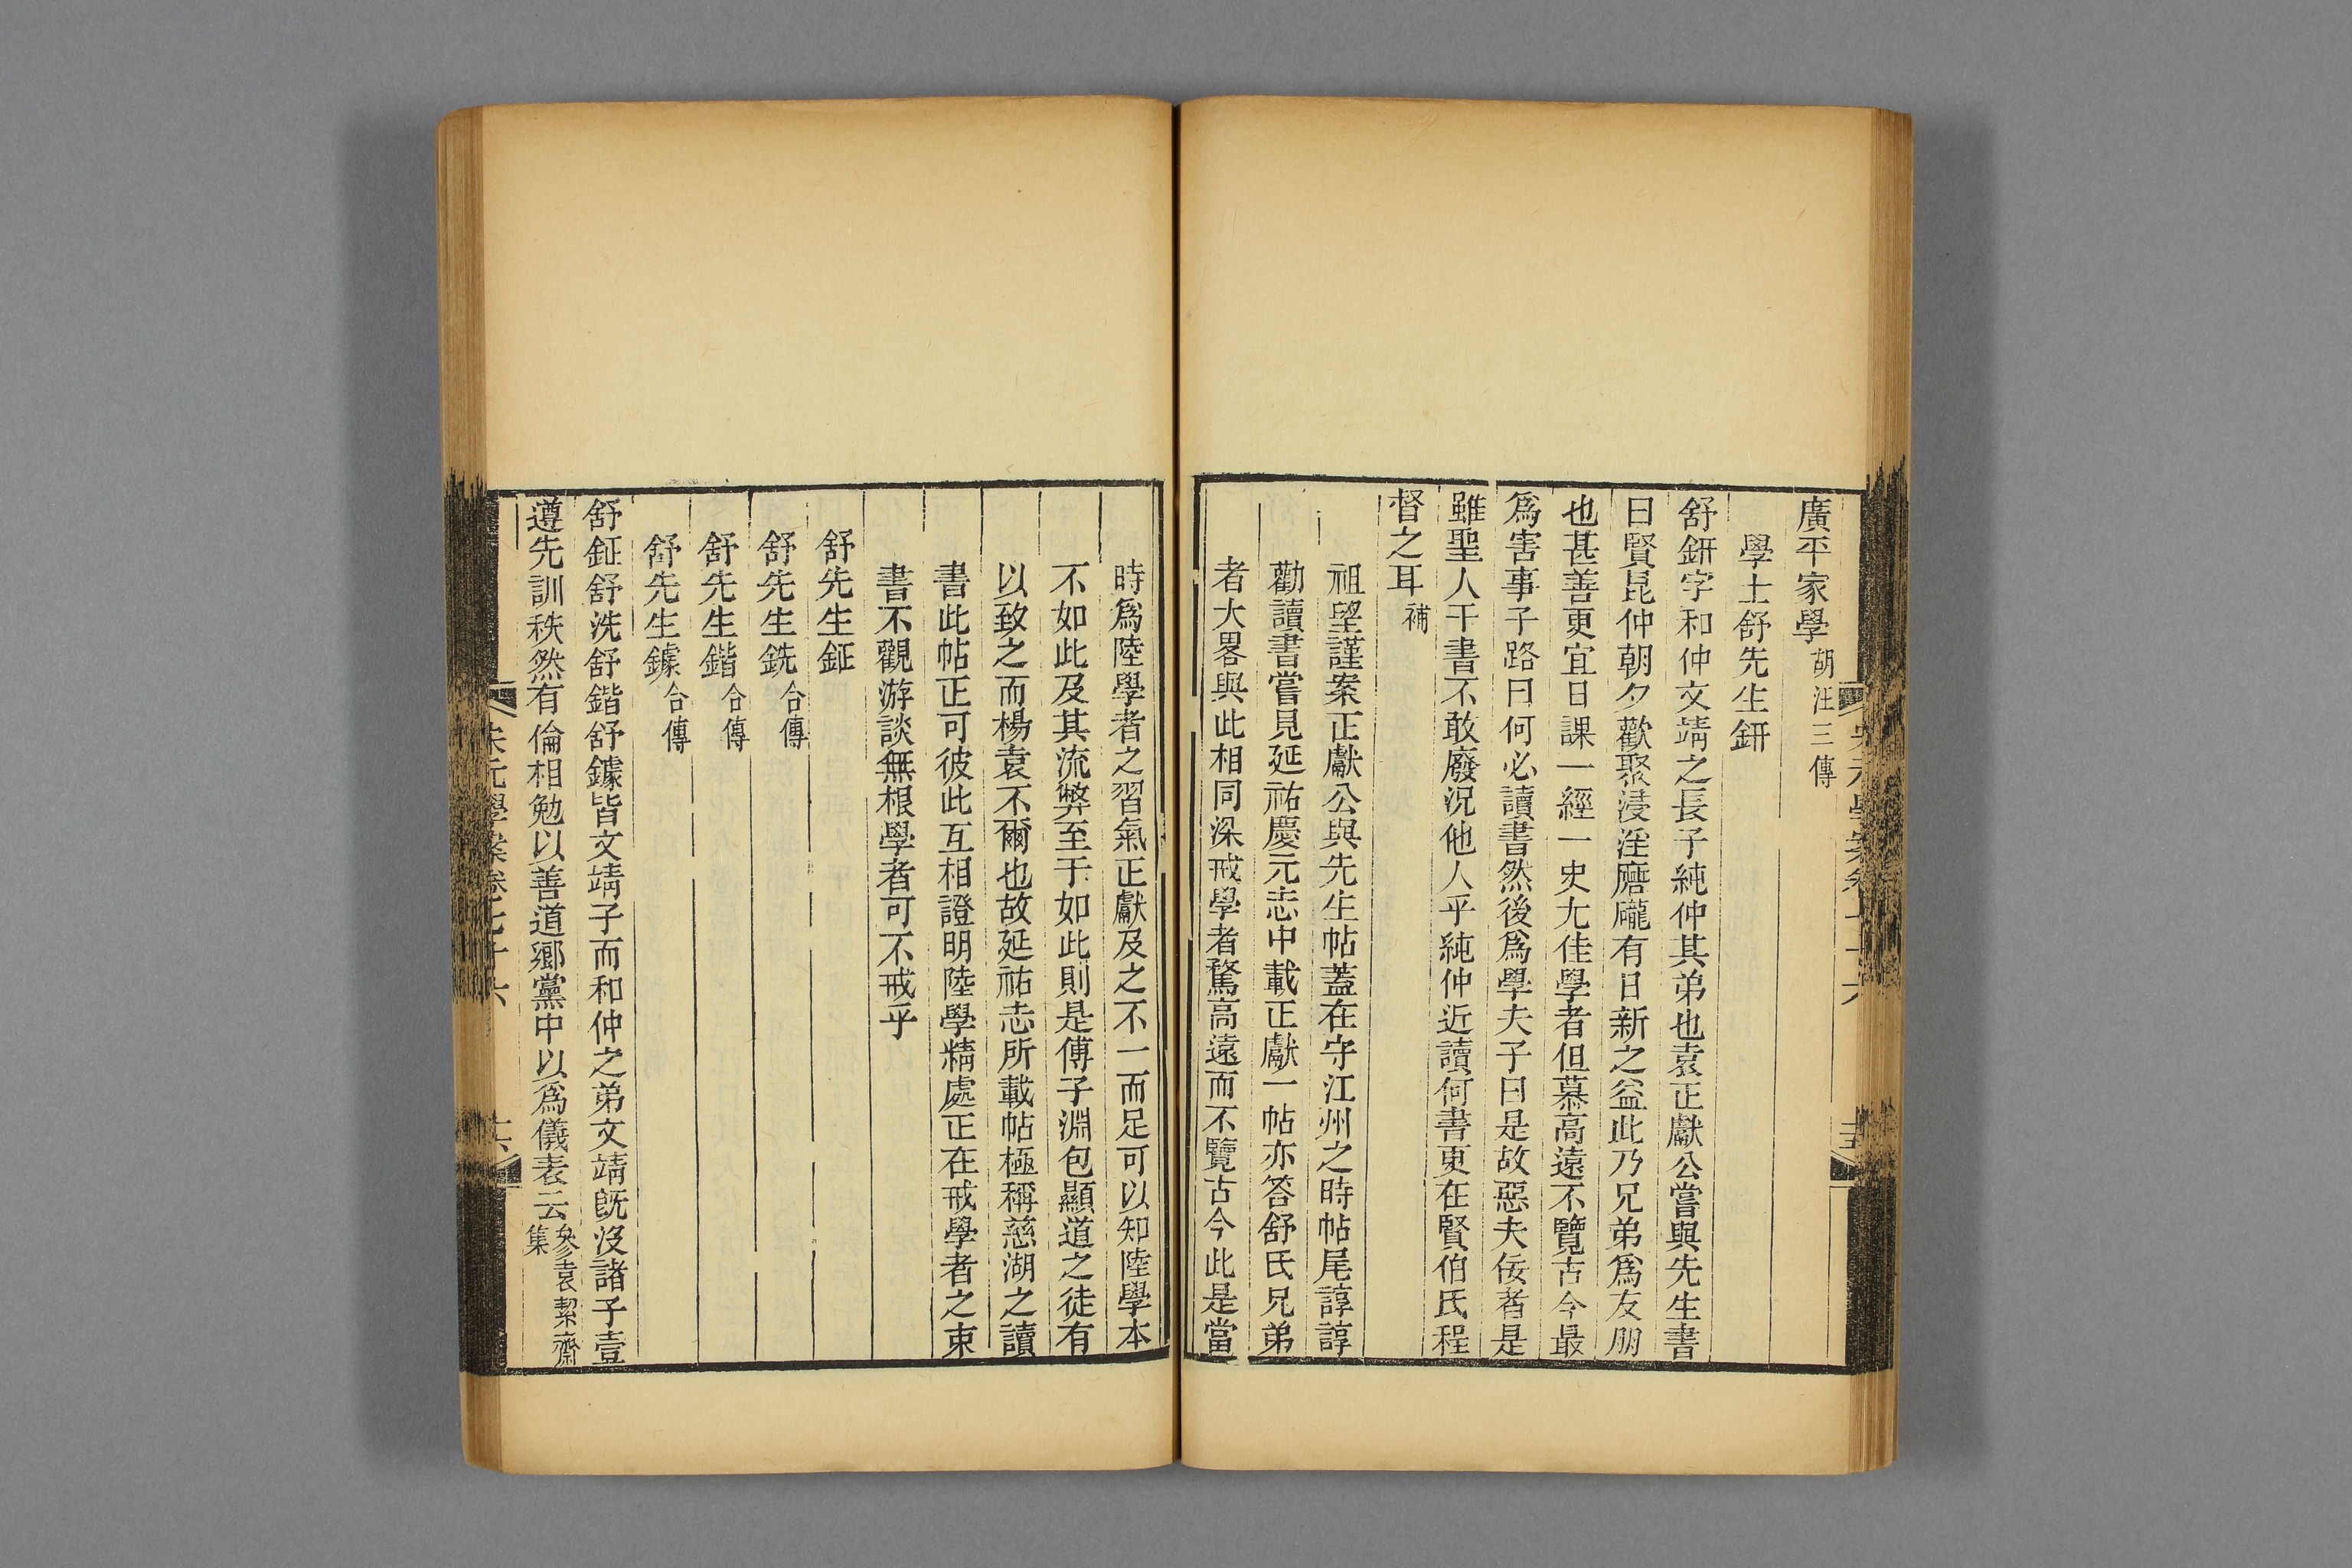 廣平家學胡汪三傳
學士舒先生銒
舒銒字和仲文靖之長子純仲其弟也袁正獻公嘗與先生書
曰賢昆仲朝夕歡聚浸淫磨礲有日新之益此乃兄弟爲友朋
也甚善更宜日課一經一史尢佳學者但慕高遠不覽古今最
爲害事子路曰何必讀書然後爲學夫子曰是故惡夫佞者是
雖聖人干書不敢廢況他人乎純仲近讀何書更在賢伯氏程
督之耳補
祖望謹案正獻公與先生帖蓋在守江州之時帖尾諄諄
勸讀書嘗見延祐慶元志中載正獻一帖亦答舒氏兄弟
者大畧與此相同深戒學者騖高遠而不覽古今此是當
時爲陸學者之習氣正獻及之不一而足可以知陸學本
不如此及其流弊至于如此則是傅子淵包顯道之徒有
以致之而楊袁不爾也故延祐志所載帖極稱慈湖之讀
書此帖正可彼此互相證明陸學精處正在戒學者之束
書不觀游談無根學者可不戒乎
舒先生鉦
舒先生銑合傳
舒先生鍇合傳
舒先生鐻合傳
舒鉦舒洗舒鍇舒鐻皆文靖子而和仲之弟文靖旣沒諸子壹
遵先訓秩然有倫相勉以善道鄉黨中以爲儀表云參袁絜齋集
宋元學案卷七十六